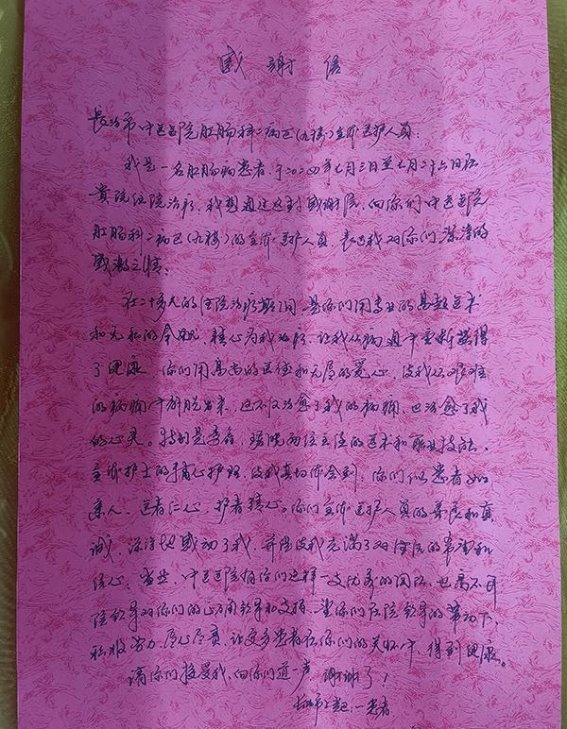 感谢信
长治市中医医院肛肠科二病区(九楼)全体医护人员
我是一名肛肠病患者,于二〇二四年七月三日至七月二十六日在
贵院住院治疗,我想通过这封感谢信,向你们中医医院
肛肠科二病区(九楼)的全体医护人员,表达我对你们深深的
感激之情。
在二十多天的住院治疗期间,是你们用专业的医术
和无私的奉献,精心为我治疗,让我从病痛中重新获得
了健康。你们用高尚的医德和无限的爱心,使我从艰难
的病痛中解脱出来,这不仅治愈了我的病痛,也治愈了我
的心灵。特别是 两位主任的医术和职业技能,
全体护士的精心护理,使我真切体会到:你们似患者如
亲人,医者仁心,护者精心。你们全体医护人员的善良和真
诚,深深地感动了我,并且使我充满了对生活的希望和
信心。当然,中医医院有你们这样一支优秀的团队,也离不开
院领导对你们的心用领导和支持。望你们在院领导的带动下,
积极努力,尽心尽责,让更多患者在你们的关怀中,得到健康。
请你们接受我,向你们道一声,谢谢了!
长治市 一患者